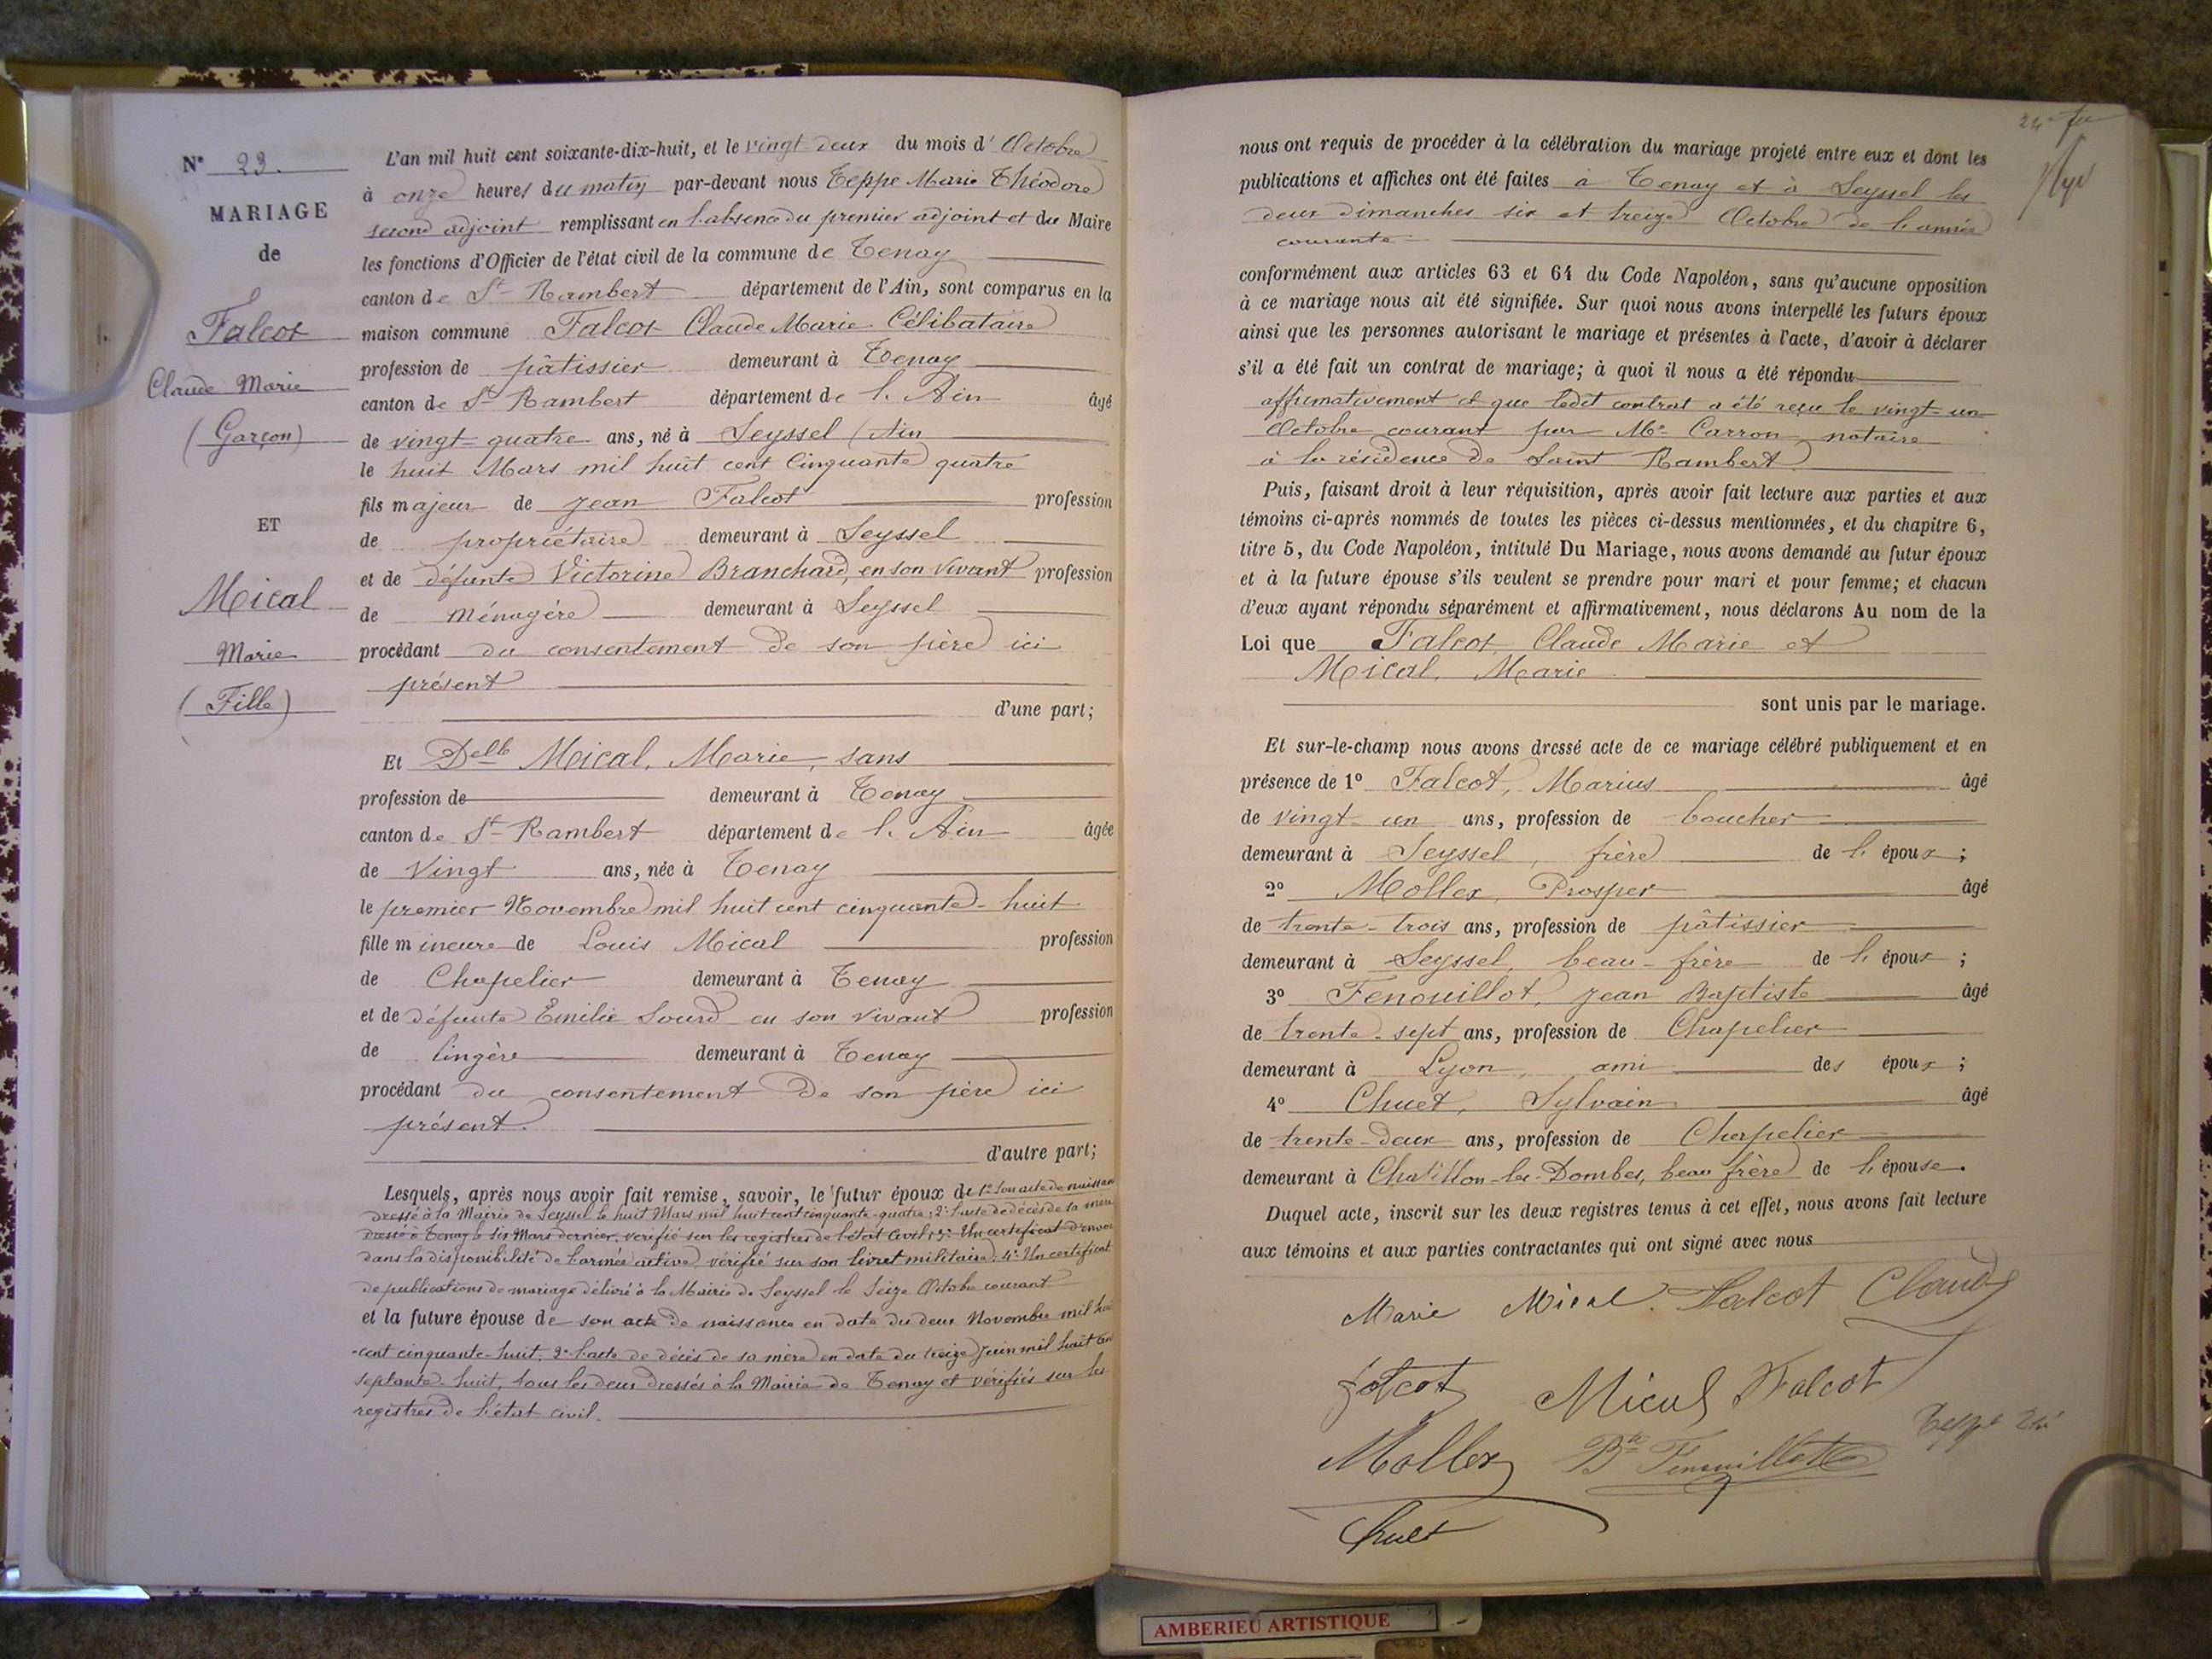 N° 23.
MARIAGE
de
Falcot
Claude Marie
(Garçon)
ET
Mical
Marie
(Fille)
L'an mil huit cent soixante-dix-huit, et le vingt-deux du mois d'Octobre
à onze heures du matin par-devant nous Teppe Marie Théodore
second adjoint remplissant en l'absence du premier adjoint et du Maire
les fonctions d'Officier de l'état civil de la commune de Tenay
canton de St Rambert département de l'Ain, sont comparus en la
maison commune Falcot Claude Marie Célibataire
profession de pâtissier demeurant à Tenay
canton de St Rambert département de l'Ain âgé
de vingt-quatre ans, né à Seyssel (Ain
le huit Mars mil huit cent Cinquante quatre
fils majeur de Jean Falcot profession
de propriétaire demeurant à Seyssel
et de défunte Victorine Branchard, en son vivant profession
de ménagère demeurant à Seyssel
procédant du consentement de son père ici
présent
d'une part;
Et Delle Mical, Marie, sans
profession de demeurant à Tenay
canton de St Rambert département de l'Ain âgée
de Vingt ans, née à Tenay
le premier Novembre mil huit cent cinquante-huit
fille mineure de Louis Mical profession
de Chapelier demeurant à Tenay
et de défunte Emilie Sourd en son vivant profession
de lingère demeurant à Tenay
procédant du consentement de son père ici
présent.
d'autre part;
Lesquels, après nous avoir fait remise, savoir, le futur époux de 1° Son acte de naissance
dressé à la Mairie de Seyssel le huit Mars mil huit cent cinquante-quatre; 2° l'acte de décès de sa mère
dressé à Tenay le six Mars dernier, vérifié sur les registres de l'état civil; 3° Un certificat d'envoi
dans la disponibilité de l'armée active, vérifié sur son livret militaire. 4° Un certificat
de publications de mariage délivré à la Mairie de Seyssel le Seize Octobre courant
et la future épouse de son acte de naissance en date du deux Novembre mil huit
-cent cinquante-huit. 2° l'acte de décès de sa mère en date du treize Juin mil huit cent
septante-huit, tous les deux dressés à la Mairie de Tenay et vérifiés sur les
registres de l'état civil.
nous ont requis de procéder à la célébration du mariage projeté entre eux et dont les
publications et affiches ont été faites à Tenay et à Seyssel les
deux dimanches six et treize Octobre de l'année
courante
conformément aux articles 63 et 64 du Code Napoléon, sans qu'aucune opposition
à ce mariage nous ait été signifiée. Sur quoi nous avons interpellé les futurs époux
ainsi que les personnes autorisant le mariage et présentes à l'acte, d'avoir à déclarer
s'il a été fait un contrat de mariage; à quoi il nous a été répondu
affirmativement et que ledit contrat a été reçu le vingt-un
Octobre courant par Me Carron notaire
à la résidence de Saint Rambert
Puis, faisant droit à leur réquisition, après avoir fait lecture aux parties et aux
témoins ci-après nommés de toutes les pièces ci-dessus mentionnées, et du chapitre 6,
titre 5, du Code Napoléon, intitulé Du Mariage, nous avons demandé au futur époux
et à la future épouse s'ils veulent se prendre pour mari et pour femme; et chacun
d'eux ayant répondu séparément et affirmativement, nous déclarons Au nom de la
Loi que Falcot, Claude Marie et
Mical, Marie
sont unis par le mariage.
Et sur-le-champ nous avons dressé acte de ce mariage célébré publiquement et en
présence de 1° Falcot, Marius âgé
de vingt-un ans, profession de boucher
demeurant à Seyssel, frère de l'époux;
2° Mollex, Prosper âgé
de trente-trois ans, profession de pâtissier
demeurant à Seyssel, beau-frère de l'époux;
3° Fenouillot, Jean Baptiste âgé
de trente-sept ans, profession de Chapelier
demeurant à Lyon, ami des époux;
4° Chuet, Sylvain âgé
de trente-deux ans, profession de Chapelier
demeurant à Chatillon-les-Dombes, beau frère de l'épouse.
Duquel acte, inscrit sur les deux registres tenus à cet effet, nous avons fait lecture
aux témoins et aux parties contractantes qui ont signé avec nous
Marie Mical. Falcot Claude
Falcot Mical Falcot
Mollex Bte Fenouillot Teppe
Chuet
AMBERIEU ARTISTIQUE